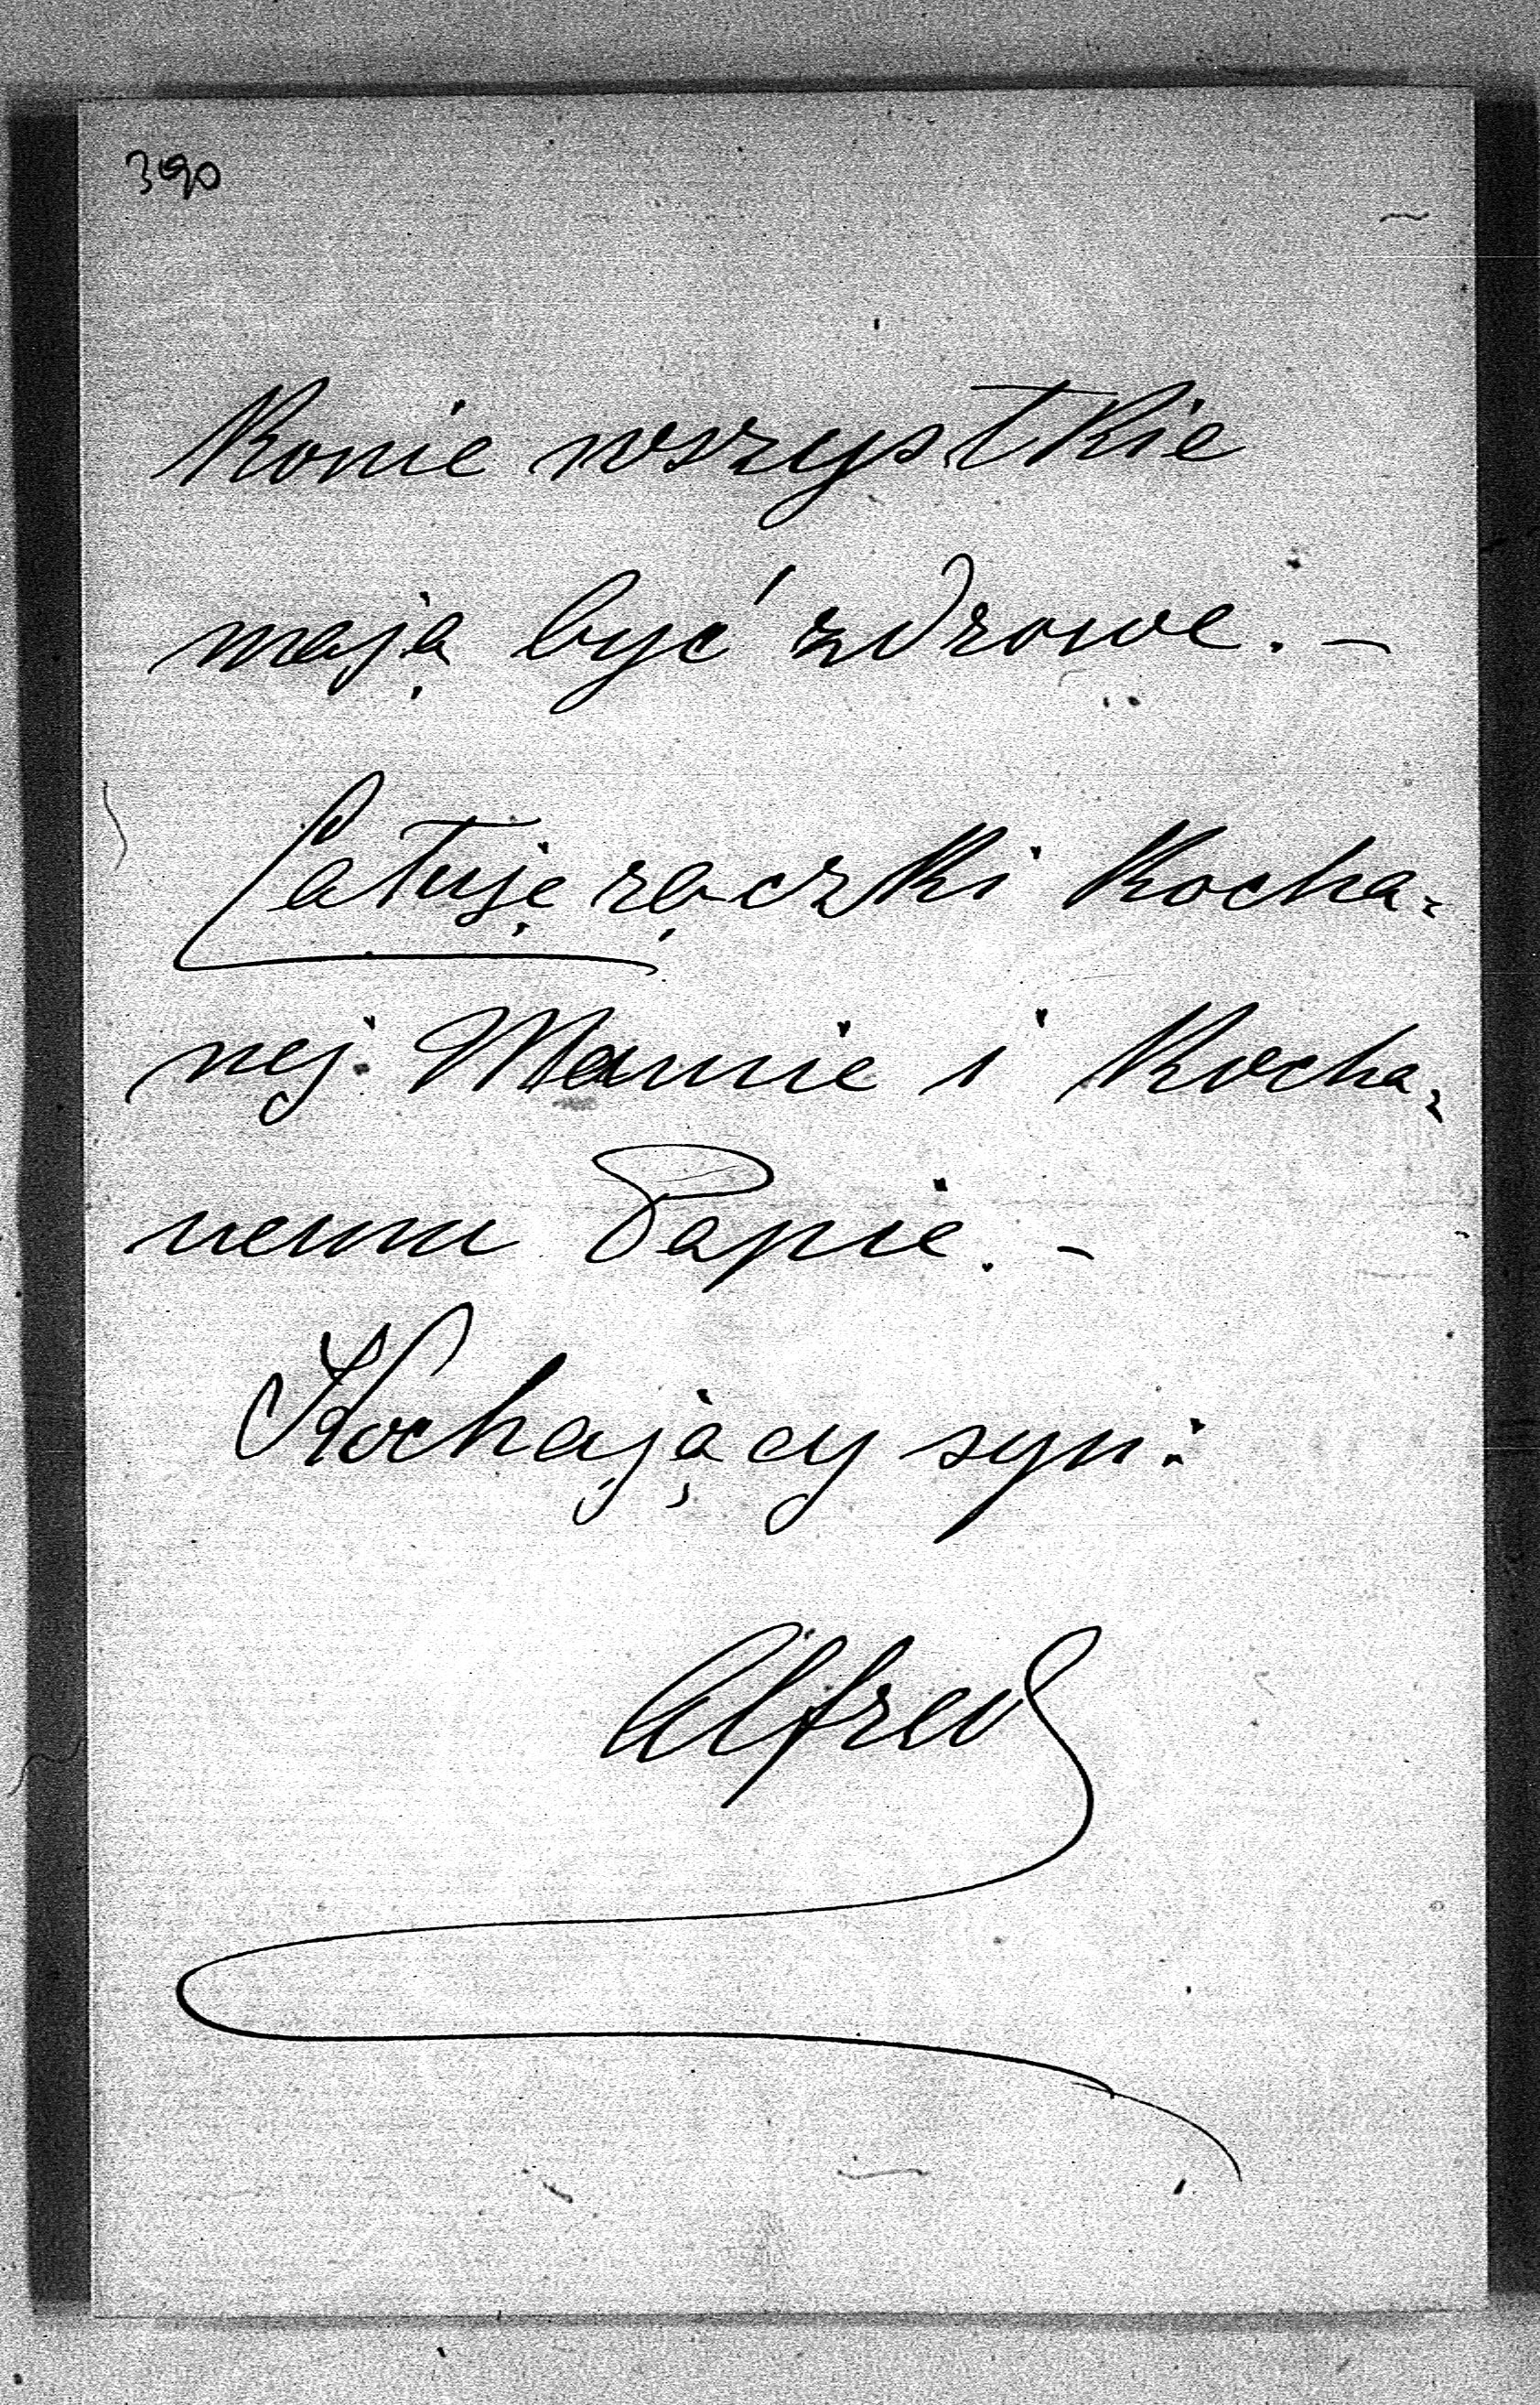 390
Konie wszystkie
mają być zdrowe. –
Całuję rączki Kocha-
nej Mamie i Kocha-
nemu Papie. –
Kochający syn:
Alfred